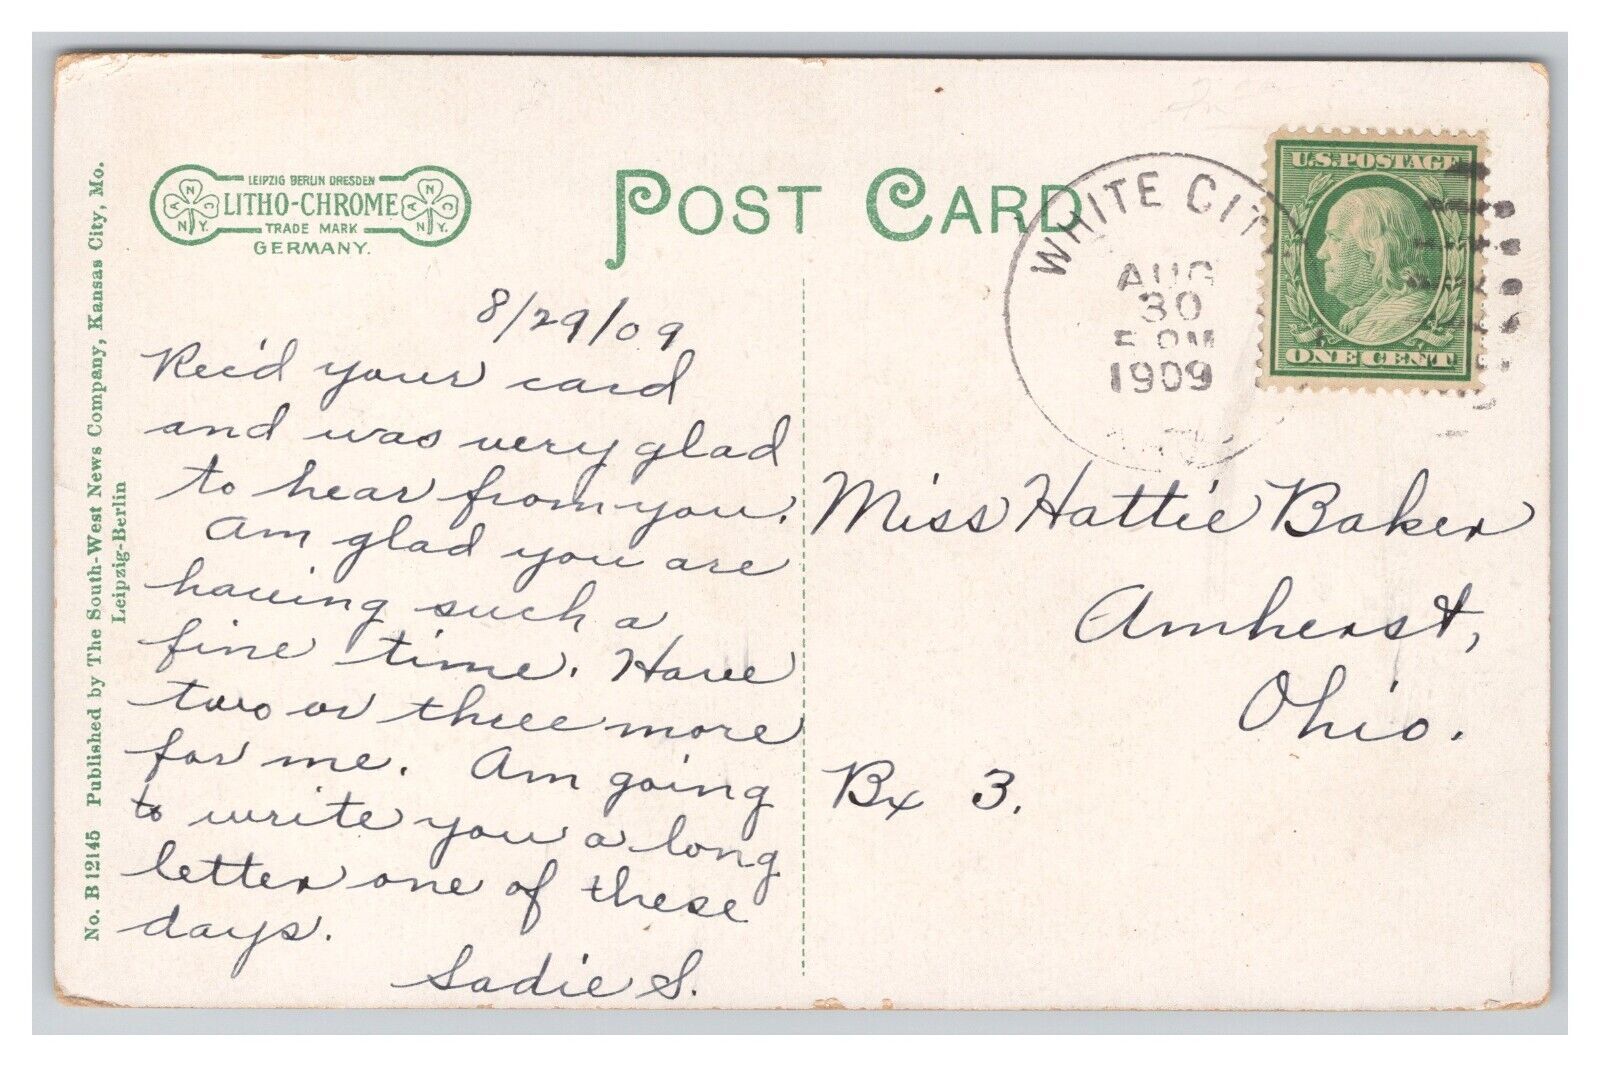 LEIPZIG BERLIN DRESDEN
LITHO-CHROME
TRADE MARK
GERMANY.
POST CARD
WHITE CITY
AUG
30
1909
U.S. POSTAGE
ONE CENT
No. B 12145 Published by The South-West News Company, Kansas City, Mo.
Leipzig-Berlin
8/29/09
Rec'd your card
and was very glad
to hear from you.
Am glad you are
having such a
fine time. Have
two or three more
for me. Am going
to write you a long
letter one of these
days.
Sadie S.
Miss Hattie Baker
Amherst,
Ohio.
Bx 3.